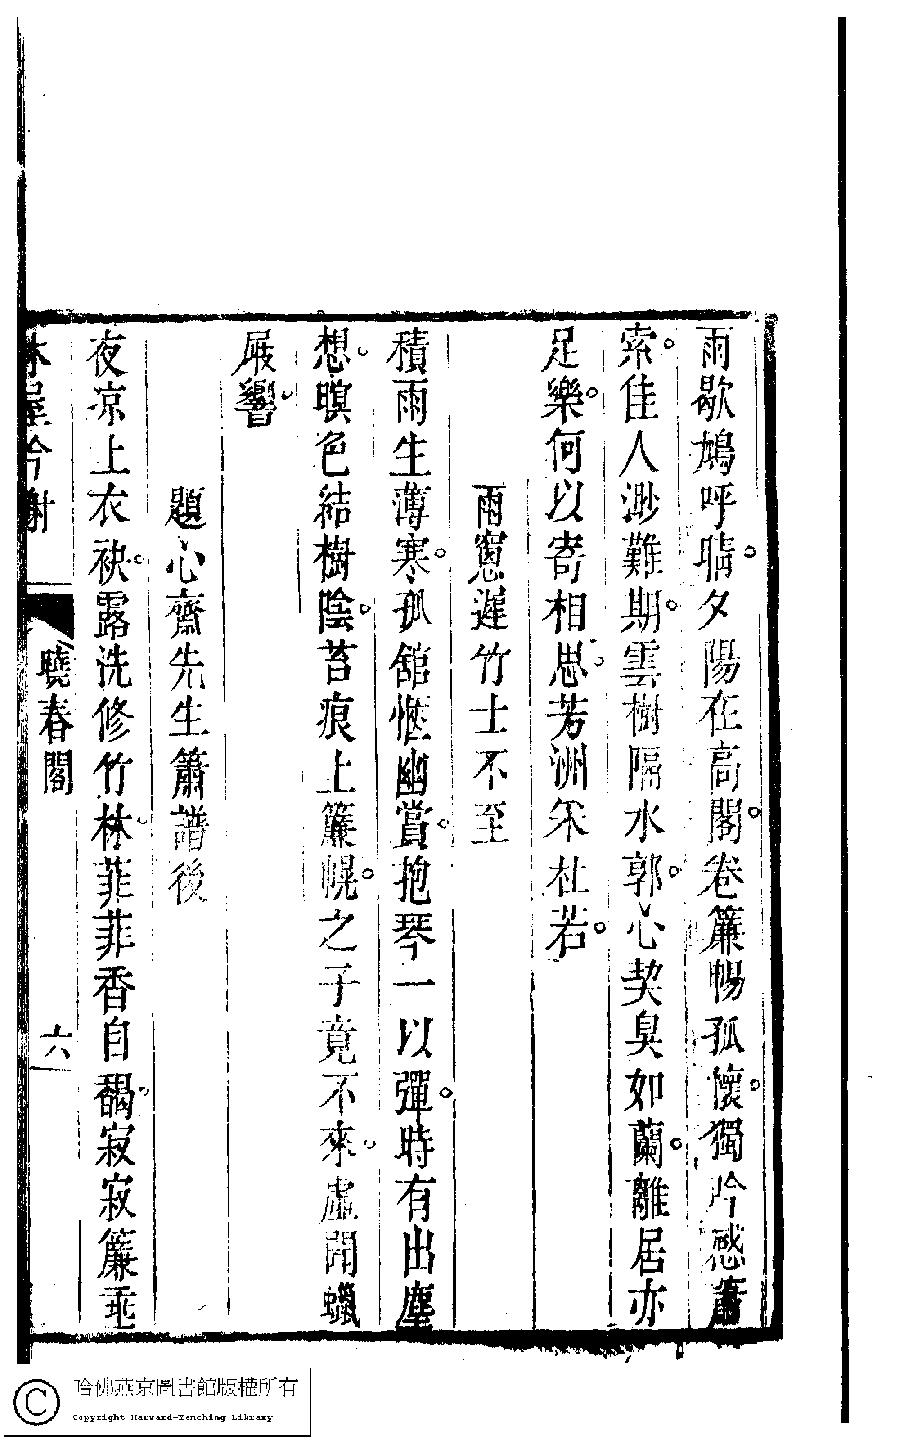 雨歇鳩呼晴。夕陽在高閣。卷簾暢孤懷。獨吟感蕭
索。佳人渺難期。雲樹隔水郭。心契臭如蘭。離居亦
足樂。何以寄相思。芳洲采杜若。
雨窻遲竹士不至
積雨生薄寒。孤舘愜幽賞。抱琴一以彈。時有出塵
想。暝色結樹陰。苔痕上簾幌。之子竟不來。虛聞蠟
屐響。
題心齋先生簫譜後
夜凉上衣袂。露洗修竹林。菲菲香自馤。寂寂簾垂
林屋吟榭
曉春閣
六
哈佛燕京圖書館版權所有
Copyright Harvard-Yenching Library